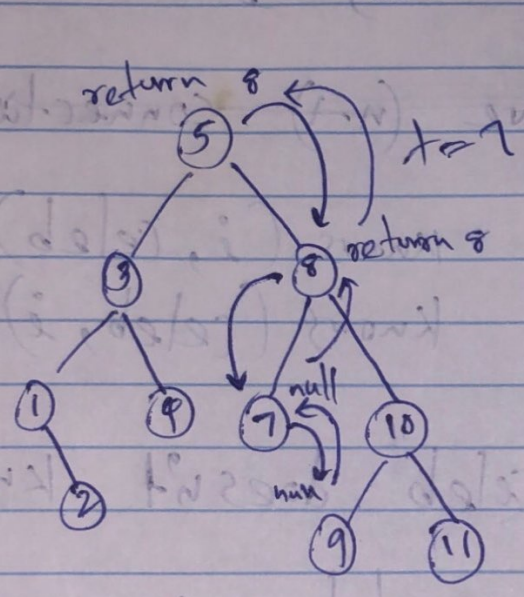 return 8
5
x = 7
3
8
return 8
1
4
7
null
10
null
2
9
11